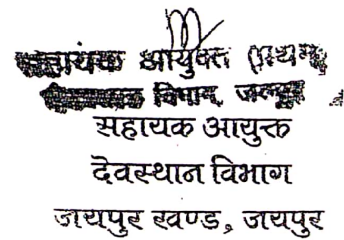 सहायक आयुक्त (प्रथम)
विभाग, जयपुर
सहायक आयुक्त
देवस्थान विभाग
जयपुर खण्ड, जयपुर